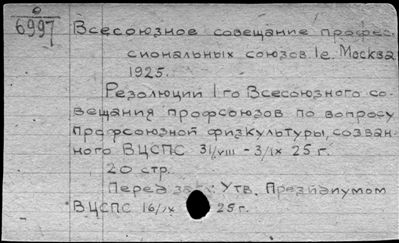 0
6997
Всесоюзное совещание профес
сиональных союзов. 1е. Москва
1925.
Резолюции 1го Всесоюзного со-
вещания профсоюзов по вопросу
профсоюзной физкультуры, созван-
ного ВЦСПС 31/VIII - 3/IX 25 г.
20 стр.
Перед Утв. Президиумом
ВЦСПС 16/IX 25 г.